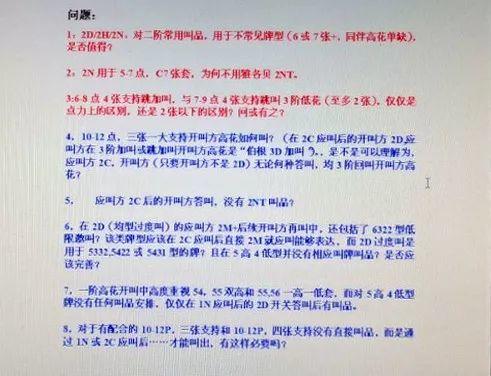 问题：
1：2D/2H/2N，对二阶常用叫品，用于不常见牌型（6 或 7 张+，同伴高花单缺），
是否值得？
2，2N 用于 5-7 点，C7 张套，为何不用雅各贝 2NT。
3:6-8 点 4 张支持跳加叫，与 7-9 点 4 张支持跳叫 3 阶低花（至多 2 张），仅仅是
点力上的区别，还是 2 张以下的区别？问或有之？
4，10-12 点，三张一大支持开叫方高花如何叫？（在 2C 应叫后的开叫方 2D,应
叫方在 3 阶加叫或跳加叫开叫方高花是“伯根 3D 加叫”），是不是可以理解为，
应叫方 2C，开叫方（只要开叫方不是 2D）无论何种答叫，均 3 阶回叫开叫方高
花？
5， 应叫方 2C 后的开叫方答叫，没有 2NT 叫品？
6，在 2D（均型过度叫）的应叫方 2M+后续开叫方再叫中，还包括了 6322 型低
限散叫？该类牌型应该在 2C 应叫后直接 2M 就应叫能够表达，而 2D 过度叫是
用于 5332,5422 或 5431 型的牌？且在 5 高 4 低型并没有相应叫牌叫品？是否应
该完善？
7，一阶高花开叫中高度重视 54，55 双高和 55,56 一高一低套，而对 5 高 4 低型
牌没有任何叫品安排，仅仅在 1N 应叫后的 2D 开关答叫后有叫品。
8，对于有配合的 10-12P，三张支持和 10-12P，四张支持没有直接叫品，而是通
过 1N 或 2C 应叫后……才能叫出，有这样必要吗？